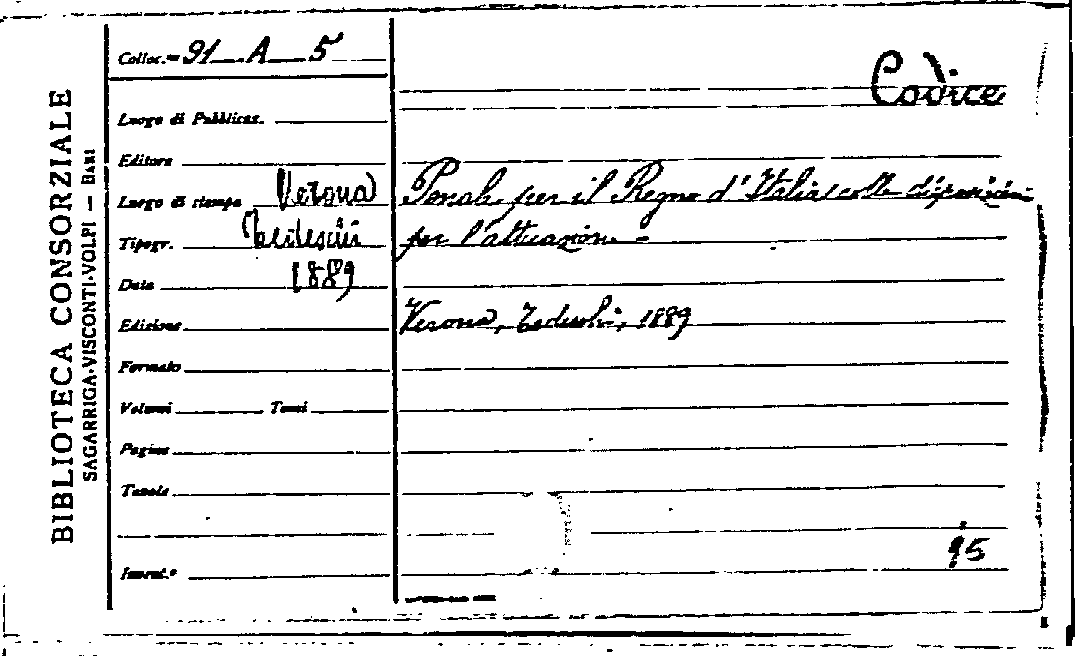 BIBLIOTECA CONSORZIALE
SAGARRIGA-VISCONTI-VOLPI — BARI
Colloc.= 91 A 5
Luogo di Pubblicaz.
Editore
Luogo di stampa Verona
Tipogr. Tedeschi
Data 1889
Edizione
Formato
Volumi Tomi
Pagine
Tavole
Invent.°
Codice
Penale per il Regno d'Italia colle disposizioni
per l'attuazione -
Verona, Tedeschi, 1889
95